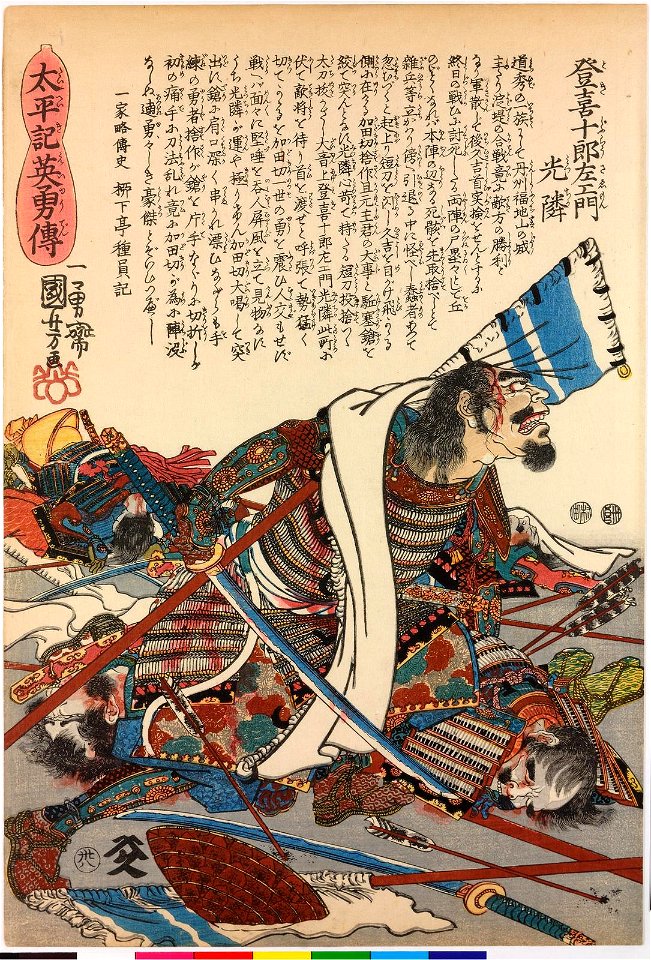 登喜十郎左エ門
光隣
道秀の一族にて丹州福地山の城
主たり淀堤の合戦竟に敵方の勝利と
なり軍散じて後久吉首実檢をせんとするに
終日の戦ひに討死したる両陣の尸累々として丘
のごとくなれバ本陣の辺なる死骸を先取捨べしとて
雑兵等立かゝり傍へ引退る中に怪しき蠢者あつて
忽むつくと起上り短刀を閃し久吉を目がけ飛かゝる
側に在あふ加田切捨作且元主君の大事と駈塞鎗を
絞て突んとなすに光隣心苛て持たる短刀投捨つゝ
太刀抜かざし大音に登喜十郎左エ門光隣此所に
伏て敵将を待り首を渡せと呼張て勢猛く
切てかゝるを加田切一世の勇を震ひ人交もせず
戦へバ面々に堅唾を呑人屏風を立て見物なに
うち光隣が運や極りけん加田切大喝して突
出す鎗に肩口深く串かれ漂ひながらも手
練の勇者捨作が鎗を片手なぐりに切折しが
初の痛手に刀法乱れ竟に加田切が為に陣没
なしぬ遖勇々しき豪傑といひつべし
一家略傳史 柳下亭種員記
太平記英勇傳
一勇齋
國芳画
廿八